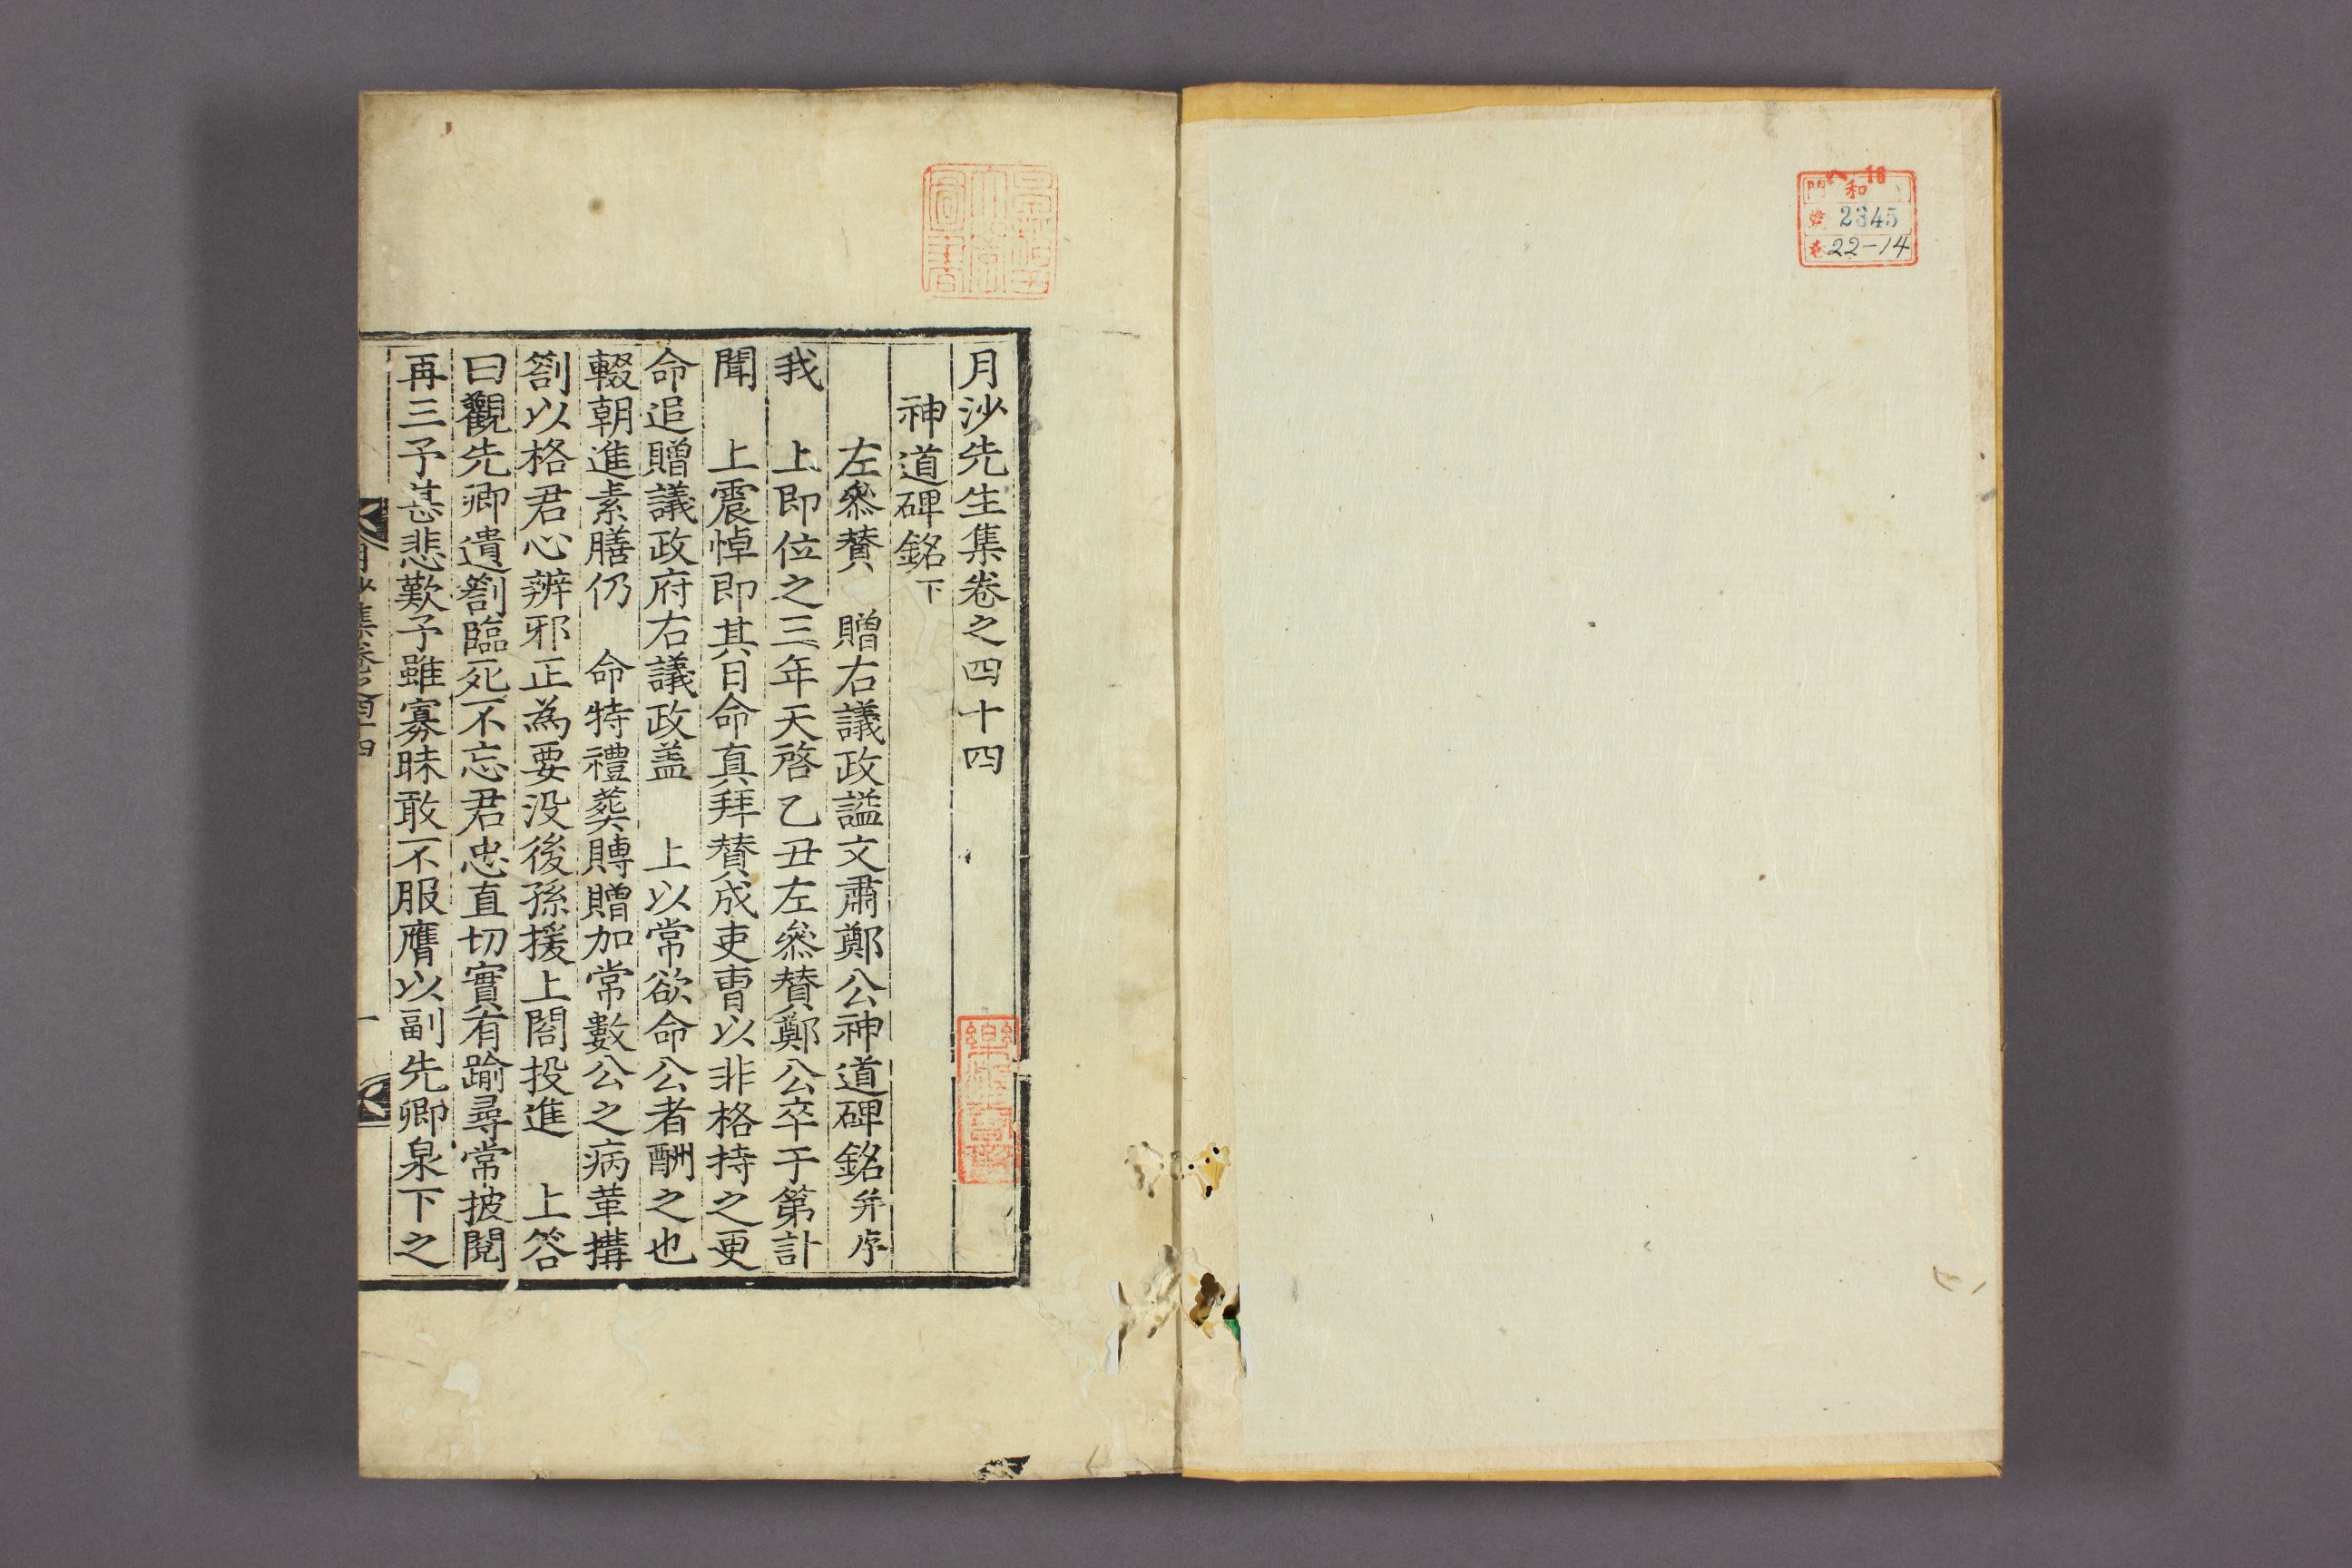 門 和 16
號 2345
卷 22-14
月沙先生集卷之四十四
神道碑銘下
左叅贊 贈右議政謚文肅鄭公神道碑銘并序
我 上即位之三年天啓乙丑左叅賛鄭公卒于第訃
聞 上震悼即其日命真拜賛成吏曹以非格持之更
命追贈議政府右議政盖 上以常欲命公者酬之也
輟朝進素膳仍 命特禮葬賻贈加常數公之病革搆
劄以格君心辨邪正為要没後孫援上閤投進 上答
曰觀先卿遺劄臨死不忘君忠直切實有踰尋常披閱
再三予甚悲歎予雖寡昧敢不服膺以副先卿泉下之
月沙集卷之四十四 一